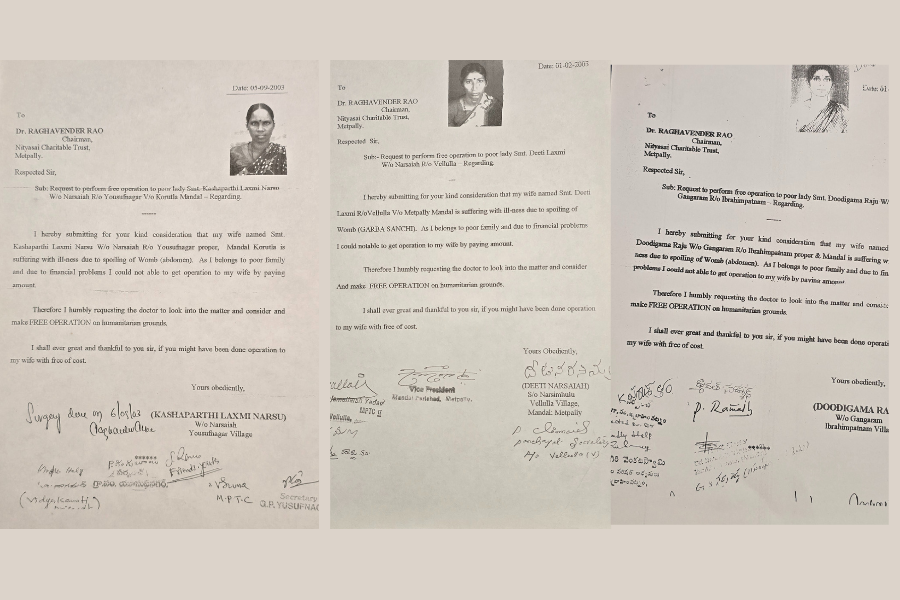 Date: 05-09-2003
To
Dr. RAGHAVENDER RAO
Chairman,
Nityasai Charitable Trust,
Metpally.
Respected Sir,
Sub: Request to perform free operation to poor lady Smt. Kashaparthi Laxmi Narsu
W/o Narsaiah R/o Yousufnagar V/o Korutla Mandal – Regarding.
I hereby submitting for your kind consideration that my wife named Smt.
Kashaparthi Laxmi Narsu W/o Narsaiah R/o Yousufnagar proper, Mandal Korutla is
suffering with ill-ness due to spoiling of Womb (abdomen). As I belongs to poor family
and due to financial problems I could not able to get operation to my wife by paying
amount.
Therefore I humbly requesting the doctor to look into the matter and consider and
make FREE OPERATION on humanitarian grounds.
I shall ever great and thankful to you sir, if you might have been done operation to
my wife with free of cost.
Yours obediently,
Surgery done on
(KASHAPARTHI LAXMI NARSU)
W/o Narsaiah
Yousufnagar Village
M.P.T.C
Secretary
G.P. YUSUFNAG
Date: 01-02-2003
To
Dr. RAGHAVENDER RAO
Chairman,
Nityasai Charitable Trust,
Metpally.
Respected Sir,
Sub:- Request to perform free operation to poor lady Smt. Deeti Laxmi
W/o Narsaiah R/o Vellulla – Regarding.
I hereby submitting for your kind consideration that my wife named Smt. Deeti
Laxmi R/o Vellulla V/o Metpally Mandal is suffering with ill-ness due to spoiling of
Womb (GARBA SANCHI). As I belongs to poor family and due to financial problems
I could notable to get operation to my wife by paying amount.
Therefore I humbly requesting the doctor to look into the matter and consider
And make FREE OPERATION on humanitarian grounds.
I shall ever great and thankful to you sir, if you might have been done operation
to my wife with free of cost.
Yours Obediently,
(DEETI NARSAIAH)
S/o Narsimhulu
Vellulla Village,
Mandal: Metpally
Vice President
Mandal Parishad, Metpally.
MPTC II
Date: 01
To
Dr. RAGHAVENDER RAO
Chairman,
Nityasai Charitable Trust,
Metpally.
Respected Sir,
Sub: Request to perform free operation to poor lady Smt. Doodigama Raju W/
Gangaram R/o Ibrahimpatnam – Regarding.
I hereby submitting for your kind consideration that my wife named
Doodigama Raju W/o Gangaram R/o Ibrahimpatnam proper & Mandal is suffering w
ness due to spoiling of Womb (abdomen). As I belongs to poor family and due to fin
problems I could not able to get operation to my wife by paying amount
Therefore I humbly requesting the doctor to look into the matter and
make FREE OPERATION on humanitarian grounds.
I shall ever great and thankful to you sir, if you might have been done operati
my wife with free of cost.
Yours obediently,
P. Ramesh
(DOODIGAMA RA
W/o Gangaram
Ibrahimpatnam Villa